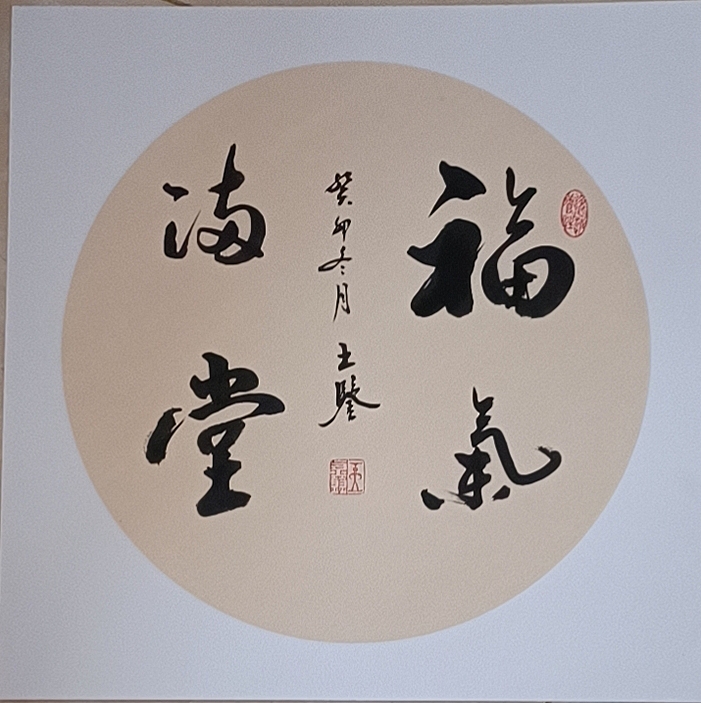 福氣
滿堂
癸卯冬月
王鑒